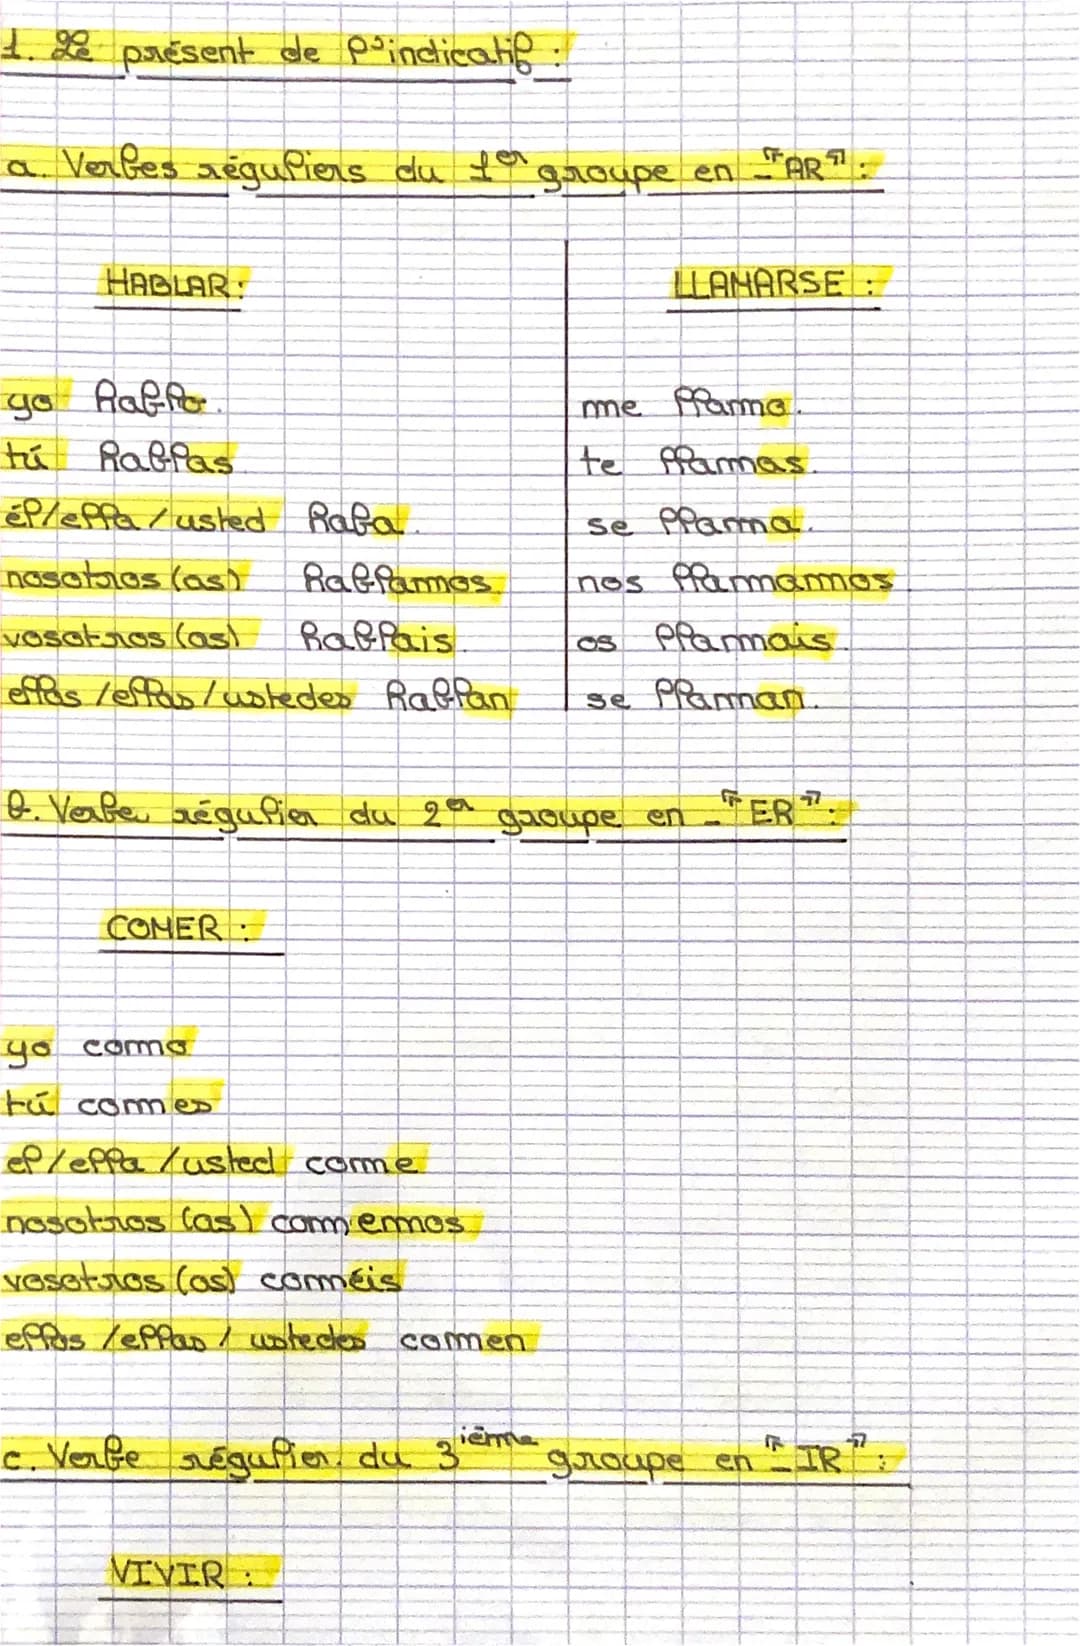 1. Le présent de l'indicatif :
a. Verbes réguliers du 1er groupe en -"AR" :
HABLAR : LLAMARSE :
yo hablo. me llamo.
tú hablas te llamas.
él/ella/usted haba. se llama.
nosotros (as) hablamos. nos llamamos
vosotros (as) hablais. os llamais.
ellos/ellas/ustedes hablan se llaman.
b. Verbe régulier du 2er groupe en -"ER" :
COMER :
yo como
tú comes
el/ella/usted come
nosotros (as) comemos
vosotros (as) coméis
ellos/ellas/ustedes comen
c. Verbe régulier. du 3ième groupe en "-IR" :
VIVIR :